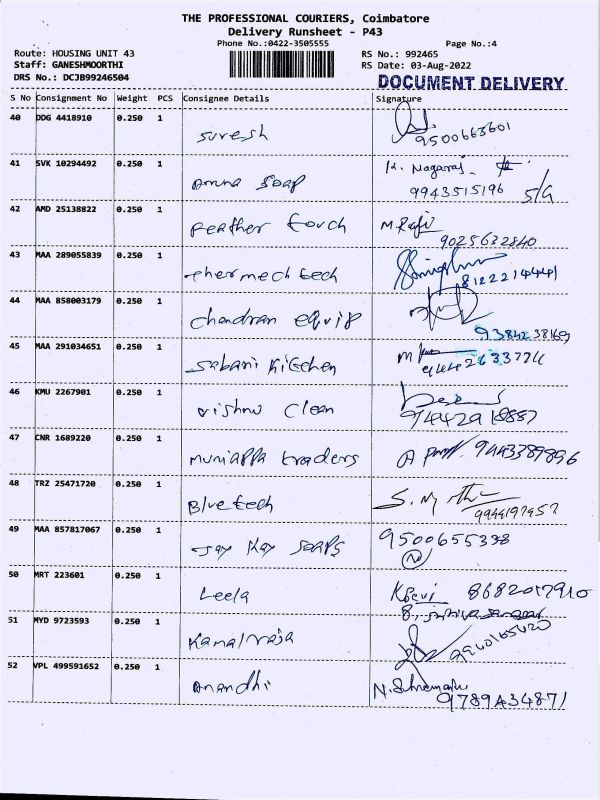 THE PROFESSIONAL COURIERS, Coimbatore
Delivery Runsheet - P43
Phone No.:0422-3505555
Page No.:4
Route: HOUSING UNIT 43
RS No.: 992465
Staff: GANESHMOORTHI
RS Date: 03-Aug-2022
DRS No.: DCJB99246504
DOCUMENT DELIVERY
S No Consignment No Weight PCS Consignee Details Signature
40 DDG 4418910 0.250 1
Suresh 9500663601
41 SVK 10294492 0.250 1 K. Nagaraj
Amma Soap 9943515196 S/G
42 AMD 25138822 0.250 1
Feather touch M. Rafi
9025632840
43 MAA 289055839 0.250 1
thermech tech 8122214441
44 MAA 858003179 0.250 1
Chandran equip
9384238169
45 MAA 291034651 0.250 1
Sabari Kitchen
46 KMU 2267901 0.250 1
Vishnu Clean 94442918887
47 CNR 1689220 0.250 1
Muniappa traders 9443389896
48 TRZ 25471720 0.250 1
Bluetech
9944197957
49 MAA 857817067 0.250 1 9500655338
Jay Kay Soaps
50 MRT 223601 0.250 1
Leela 8682017910
51 MYD 9723593 0.250 1
Kamalraja 9940165420
52 VPL 499591652 0.250 1
Anandhi
9789434871